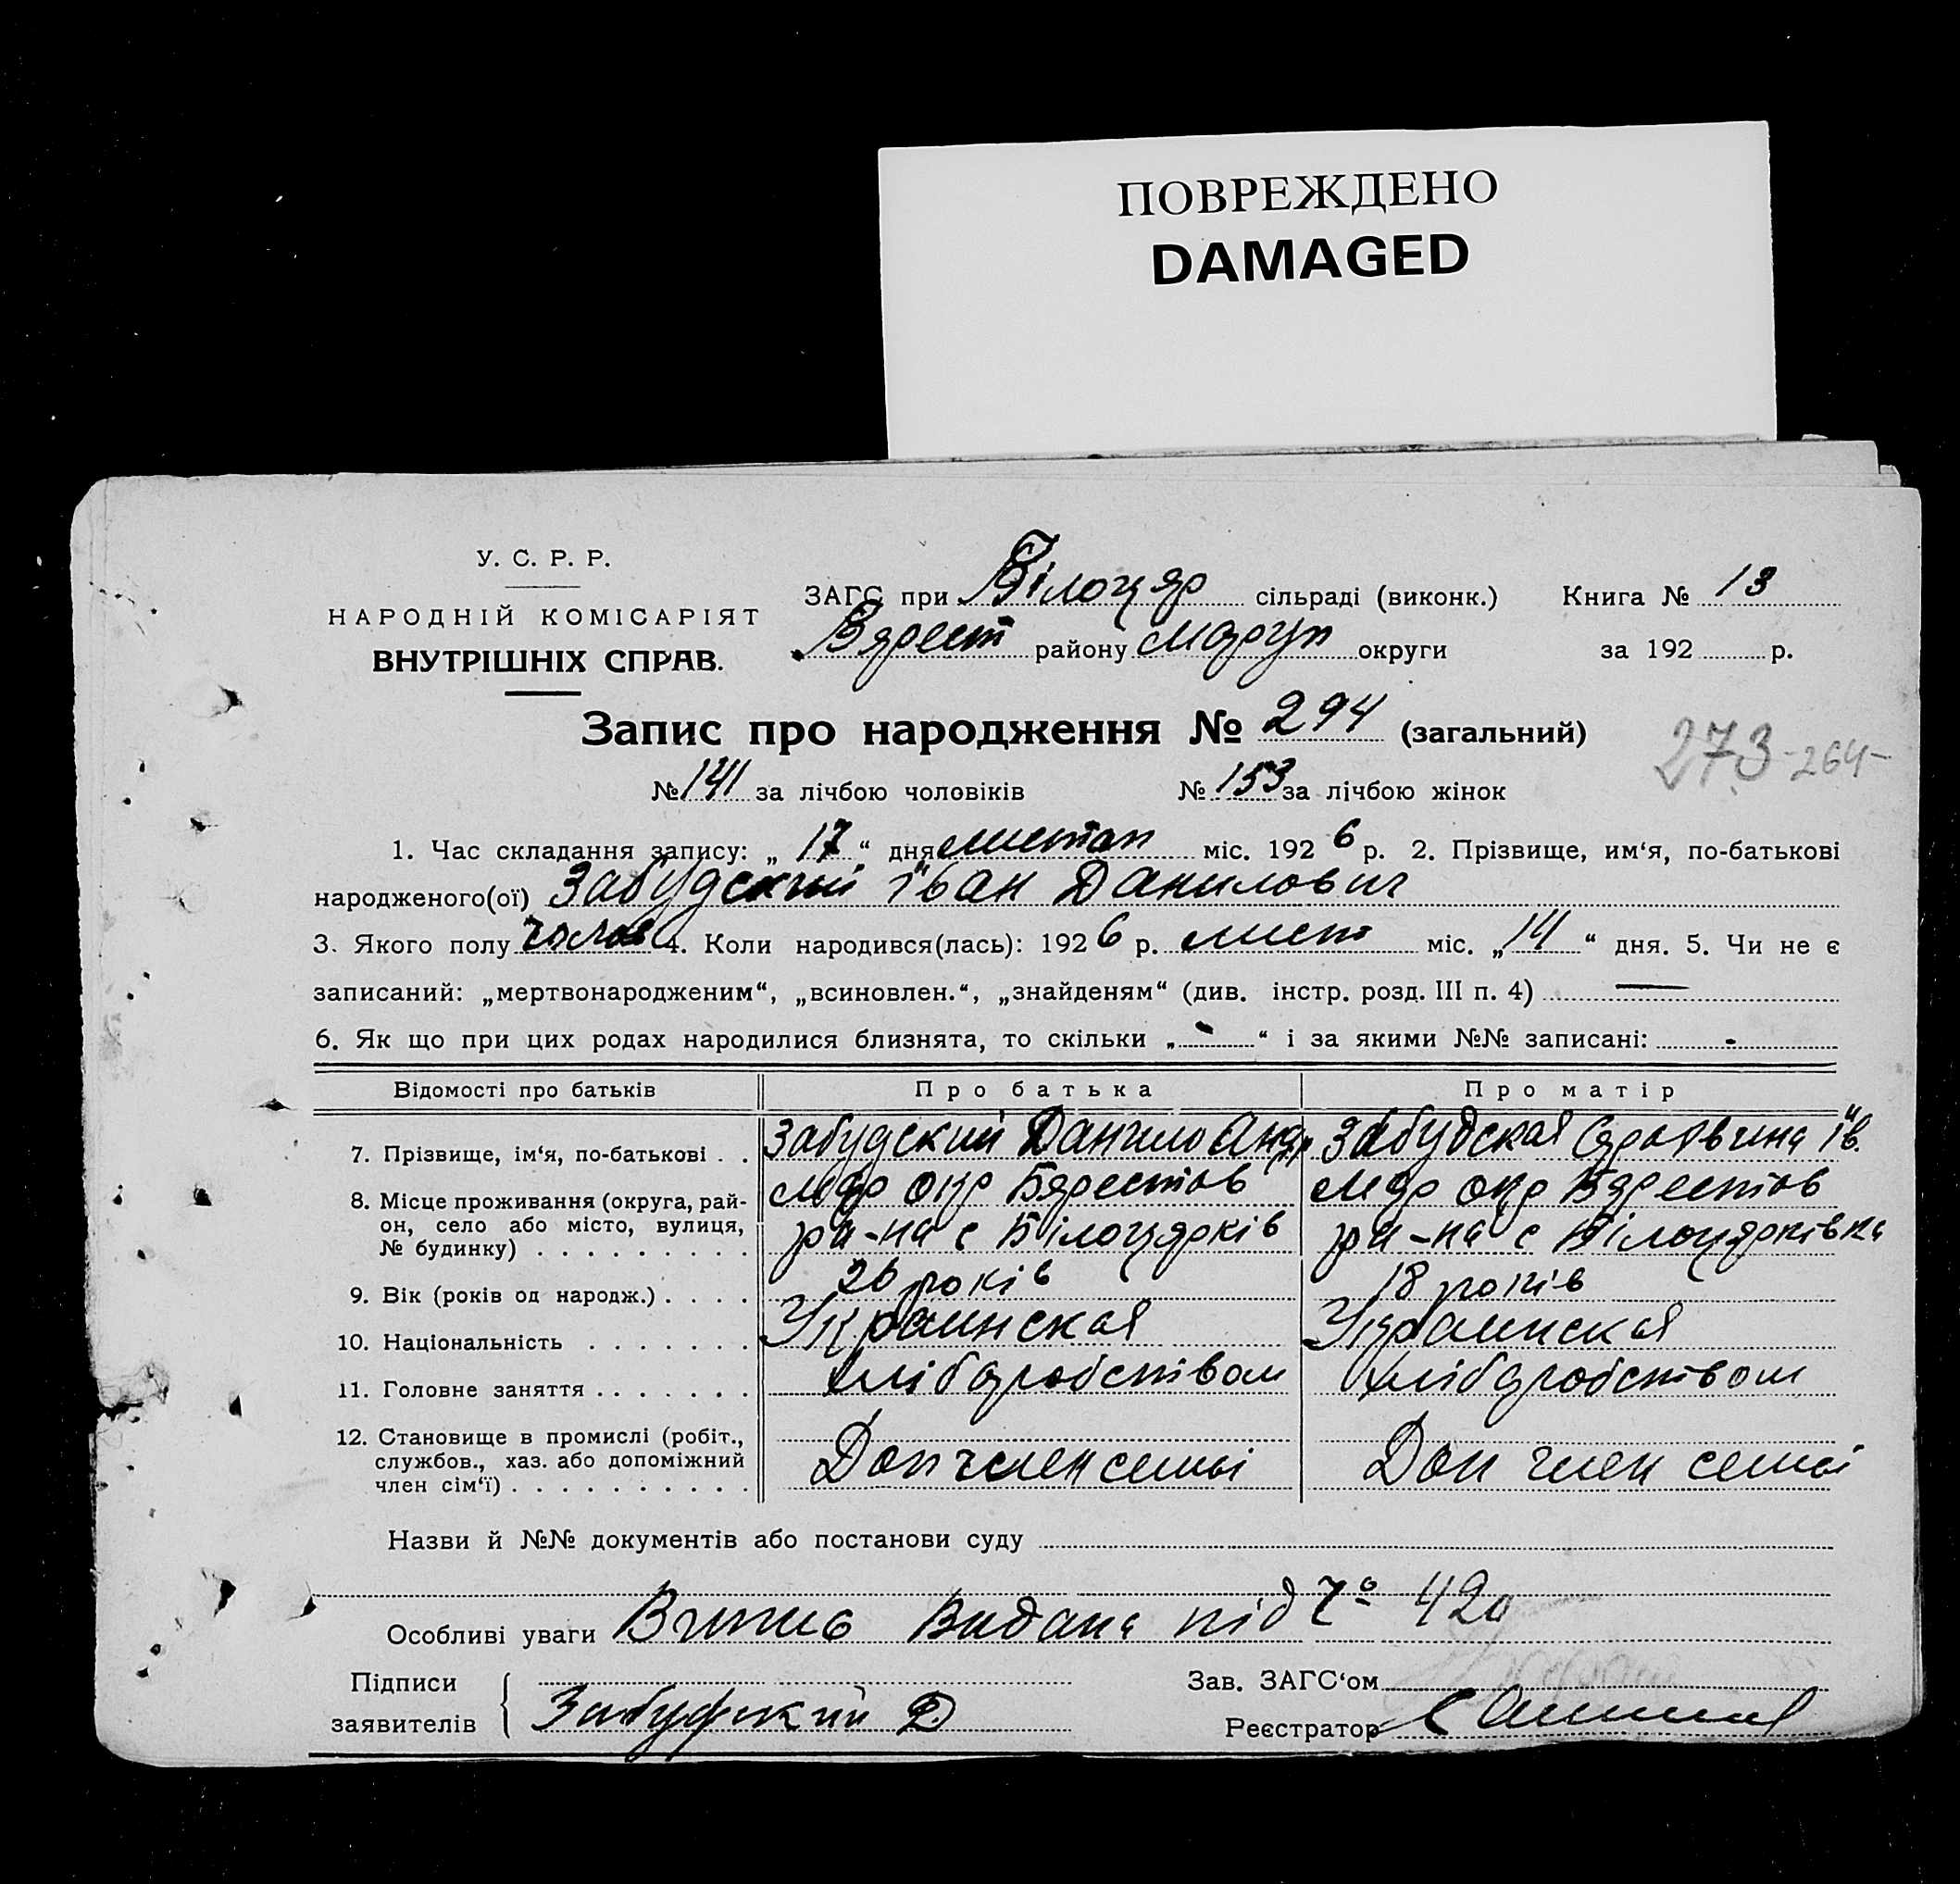 ПОВРЕЖДЕНО
DAMAGED
У. С. Р. Р.
НАРОДНІЙ КОМІСАРІЯТ
ВНУТРІШНІХ СПРАВ.
ЗАГС при Білоцер сільраді (виконк.) Книга № 13
району Марун округи за 192 р.
Запис про народження № 294 (загальний)
273 -264-
№ 141 за лічбою чоловіків № 153 за лічбою жінок
1. Час складання запису: „ 17 “ дня листоп міс. 192 6 р. 2. Прізвище, им‘я, по-батькові
народженого(ої) Забудский Іван Данилович
3. Якого полу чолов 4. Коли народився(лась): 192 6 р. лист міс. „ 14 “ дня. 5. Чи не є
записаний: „мертвонародженим“, „всиновлен.“, „знайденям“ (див. інстр. розд. III п. 4) —
6. Як що при цих родах народилися близнята, то скільки „ - “ і за якими №№ записані: -
Відомості про батьків Про батька Про матір
7. Прізвище, ім‘я, по-батькові . . Забудский Данило Анд Забудская Ів.
8. Місце проживання (округа, рай- Мар окр Бярестов Мар окр Бярестов
он, село або місто, вулиця, ра-на с Білоцярків ра-на с Білоцярківка
№ будинку) . . . . . . . . .
9. Вік (років од народж.) . . . . 26 років 18 років
10. Національність . . . . . . . Украинская Украинская
11. Головне заняття . . . . . . . хлібаробством хлібаробством
12. Становище в промислі (робіт.,
службов., хаз. або допоміжний Доп член семьі Доп член семьі
член сім‘ї) . . . . . . . . . .
Назви й №№ документів або постанови суду
Особливі уваги Випись Видана під № 420
Підписи Зав. ЗАГС‘ом
заявителів Забудский Д Реєстратор